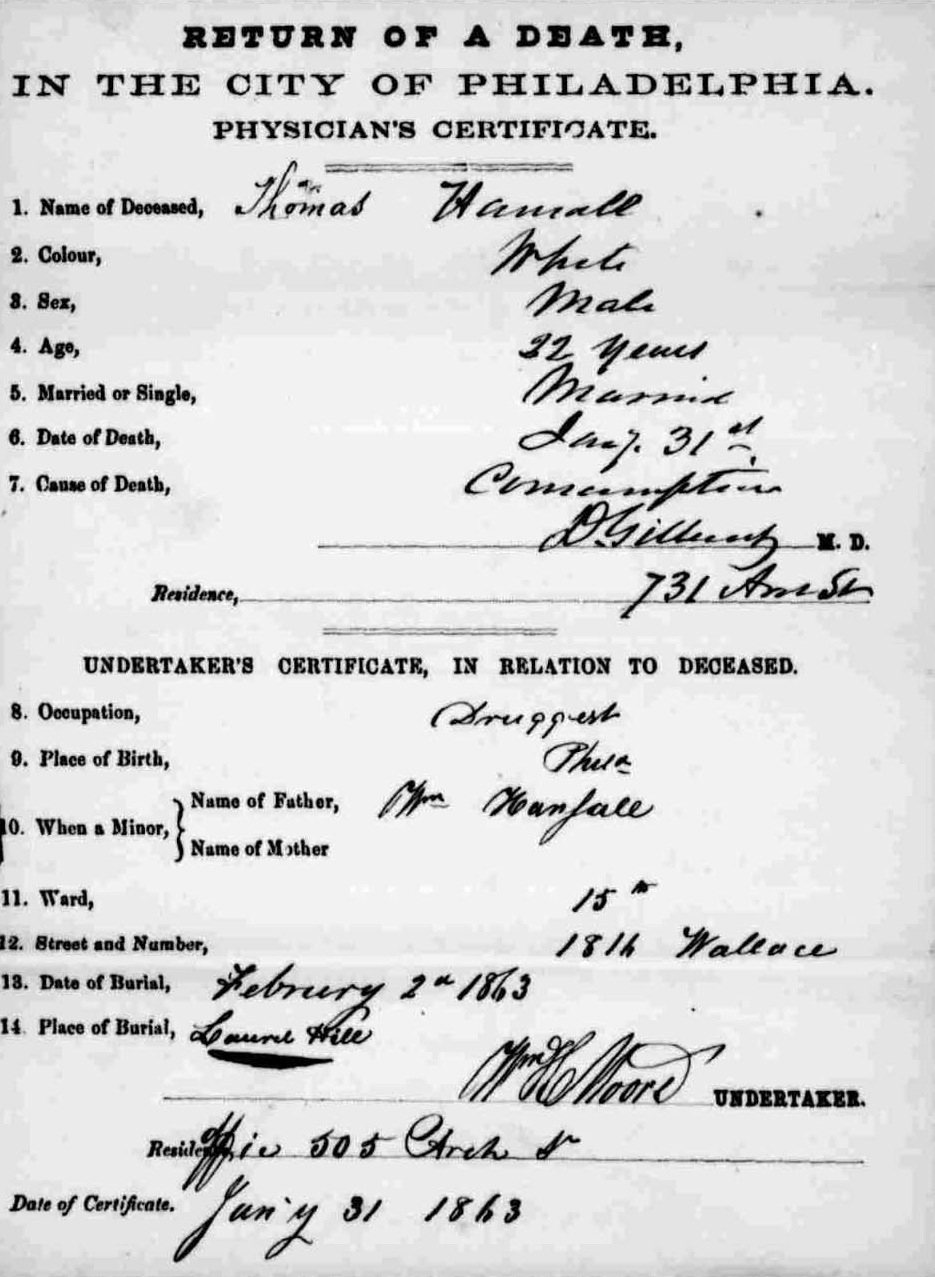 RETURN OF A DEATH,
IN THE CITY OF PHILADELPHIA.
PHYSICIAN'S CERTIFICATE.
1. Name of Deceased, Thomas
2. Colour, White
3. Sex, Male
4. Age, 22 Years
5. Married or Single, Married
6. Date of Death, Jany. 31st
7. Cause of Death, Consumption
D. Gilbert M. D.
Residence, 731 St
UNDERTAKER'S CERTIFICATE, IN RELATION TO DECEASED.
8. Occupation, Druggest
9. Place of Birth, Phila
10. When a Minor, Name of Father, Wm Hansall
Name of Mother
11. Ward, 15th
12. Street and Number, Wallace
13. Date of Burial, Februry 2d 1863
14 Place of Burial, Laurel Hill
Wm H Moore UNDERTAKER.
Residen office 505 Arch St
Date of Certificate. Jan'y 31 1863